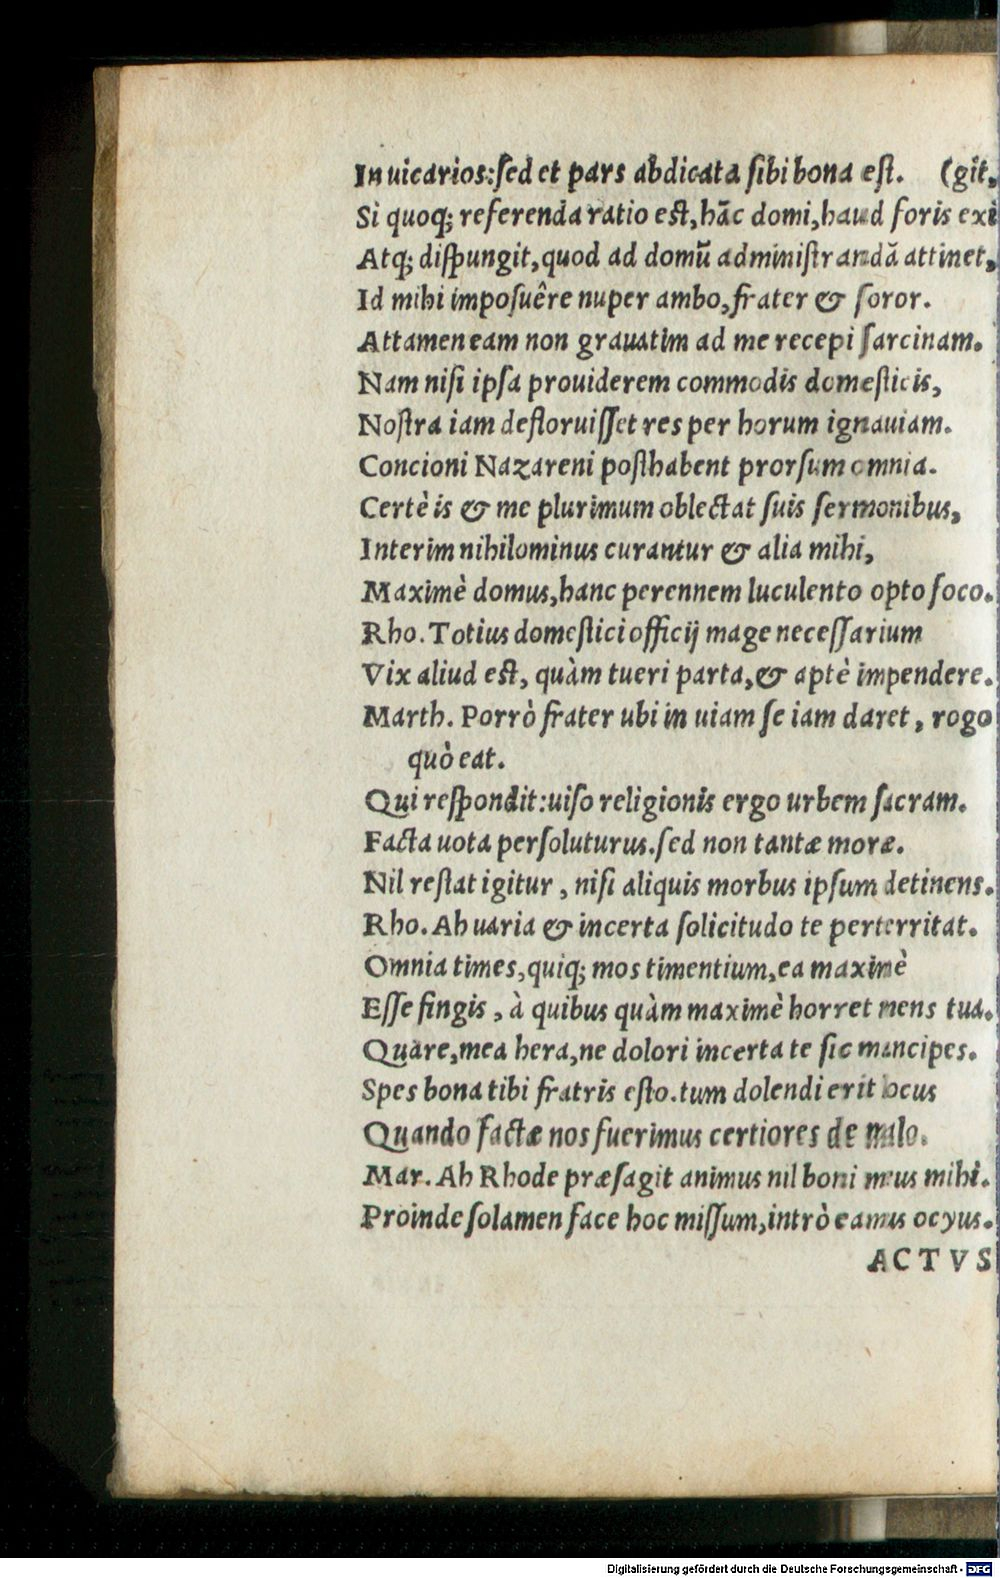 In uicarios:ſed et pars abdicata ſibi bona eſt. (git,
Si quoq; referenda ratio eſt, hãc domi, haud foris exi
Atq; diſpungit, quod ad domũ adminiſtrandã attinet,
Id mihi impoſuêre nuper ambo, frater & ſoror.
Attamen eam non grauatim ad me recepi ſarcinam.
Nam niſi ipſa prouiderem commodis domeſticis,
Noſtra iam defloruiſſet res per horum ignauiam.
Concioni Nazareni poſthabent prorſum omnia.
Certè is & me plurimum oblectat ſuis ſermonibus,
Interim nihilominus curantur & alia mihi,
Maximè domus, hanc perennem luculento opto foco.
Rho. Totius domeſtici officij mage neceſſarium
Vix aliud eſt, quàm tueri parta, & aptè impendere.
Marth. Porrò frater ubi in uiam ſe iam daret, rogo
quò eat.
Qui reſpondit: uiſo religionis ergo urbem ſacram.
Facta uota perſoluturus. ſed non tantæ moræ.
Nil reſtat igitur, niſi aliquis morbus ipſum detinens.
Rho. Ah uaria & incerta ſolicitudo te perterritat.
Omnia times, quiq; mos timentium, ea maximè
Eſſe fingis, à quibus quàm maximè horret mens tua.
Quare, mea hera, ne dolori incerta te ſic mancipes.
Spes bona tibi fratris eſto. tum dolendi erit locus
Quando factæ nos fuerimus certiores de malo.
Mar. Ah Rhode præſagit animus nil boni meus mihi.
Proinde ſolamen face hoc miſſum, intrò eamus ocyus.
ACTVS
Digitalisierung gefördert durch die Deutsche Forschungsgemeinschaft - DFG